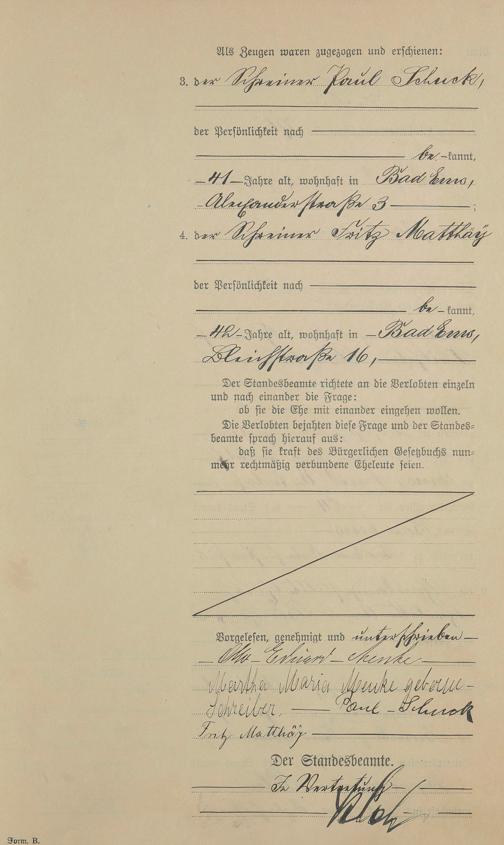 Als Zeugen waren zugezogen und erschienen:
3. der Schreiner Paul Schuck,
der Persönlichkeit nach
be-kannt,
41 Jahre alt, wohnhaft in Bad Ems,
Alexanderstraße 3 ;
4. der Schreiner Fritz Matthäy
der Persönlichkeit nach
be-kannt,
42 Jahre alt, wohnhaft in Bad Ems,
Bleichstraße 16,
Der Standesbeamte richtete an die Verlobten einzeln
und nach einander die Frage:
ob sie die Ehe mit einander eingehen wollen.
Die Verlobten bejahten diese Frage und der Standes-
beamte sprach hierauf aus:
daß sie kraft des Bürgerlichen Gesetzbuchs nun-
mehr rechtmäßig verbundene Eheleute seien.
Vorgelesen, genehmigt und unterschrieben
Otto Eduard Menke
Martha Maria Menke geborene
Schreiber. Paul Schuck
Fritz Matthäy
Der Standesbeamte.
In Vertretung
Form. B.